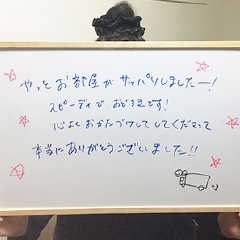 やっとお部屋がサッパリしましたー!
スピーディで おどろきです!
心よく おかたづけして してくださって
本当にありがとうございました!!